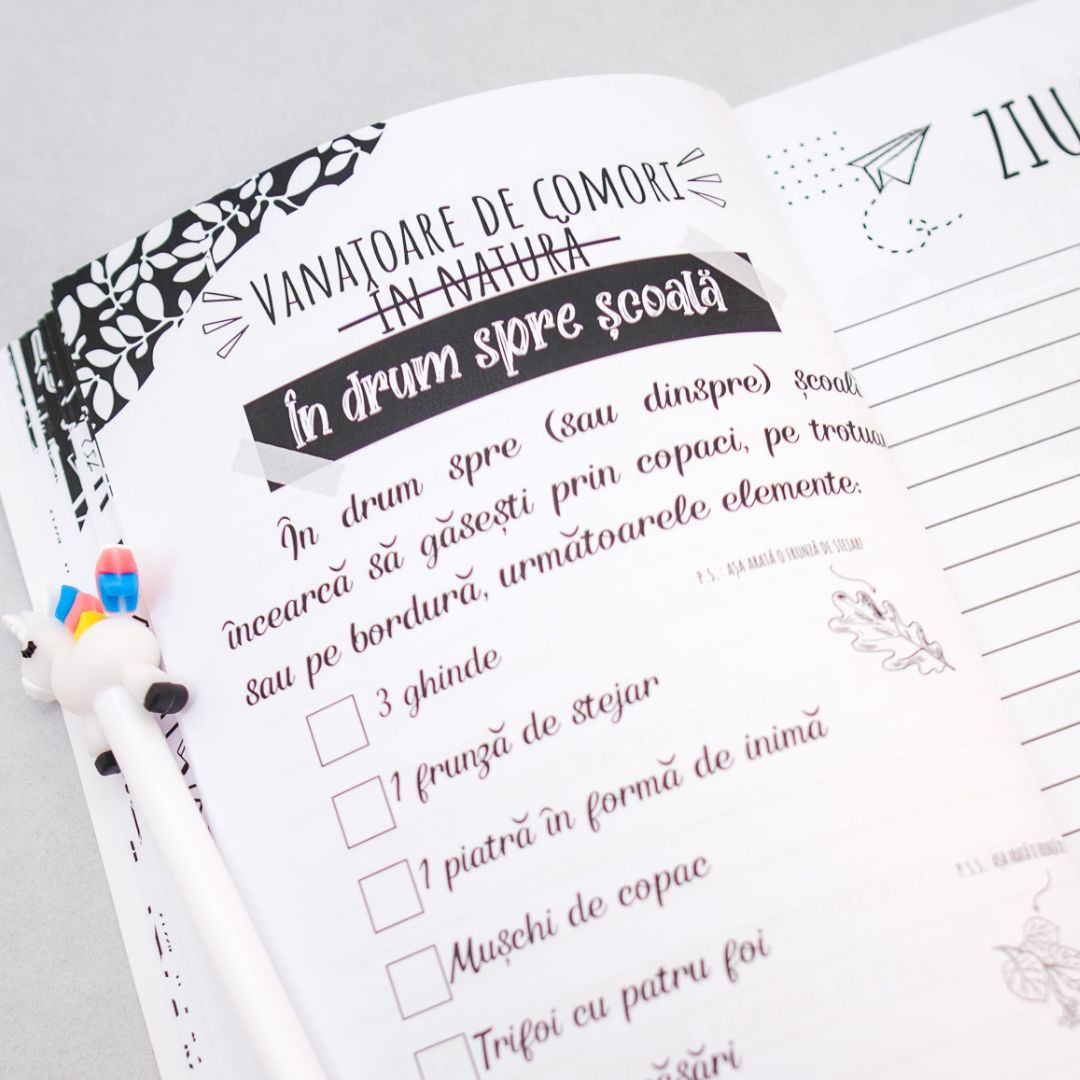 VANATOARE DE COMORI
ÎN NATURĂ
În drum spre școală
În drum spre (sau dinspre)
încearcă să găsești prin copaci, pe
sau pe bordură, următoarele elemente:
P.S.: AȘA ARATĂ O FRUNZĂ DE STEJAR!
3 ghinde
1 frunză de stejar
1 piatră în formă de inimă
Mușchi de copac
P.S.S. AȘA ARATĂ O
Trifoi cu patru foi
ZIU